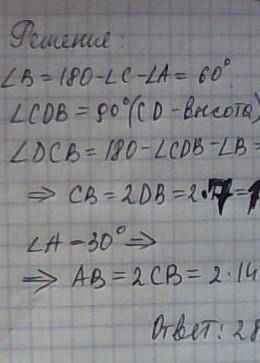 Решение:
∠B = 180-∠C-∠A = 60°
∠CDB = 90° (CD - высота)
∠DCB = 180-∠CDB-∠B =
⇒ CB = 2DB = 2·7 = 1
∠A = 30° ⇒
⇒ AB = 2CB = 2·14
Ответ: 28